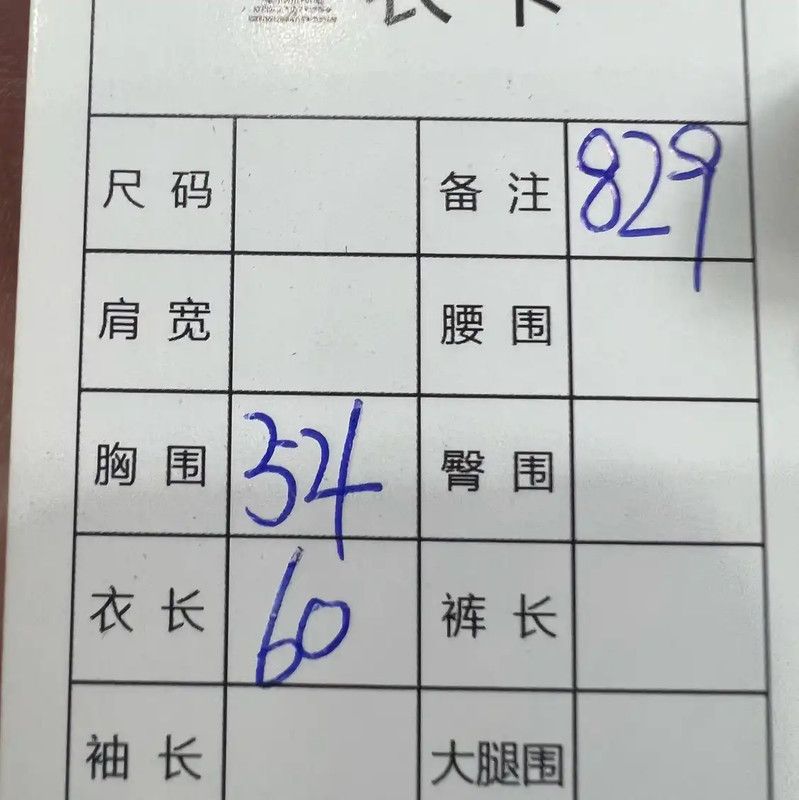 衣卡
尺码 备注 829
肩宽 腰围
胸围 54 臀围
衣长 60 裤长
袖长 大腿围